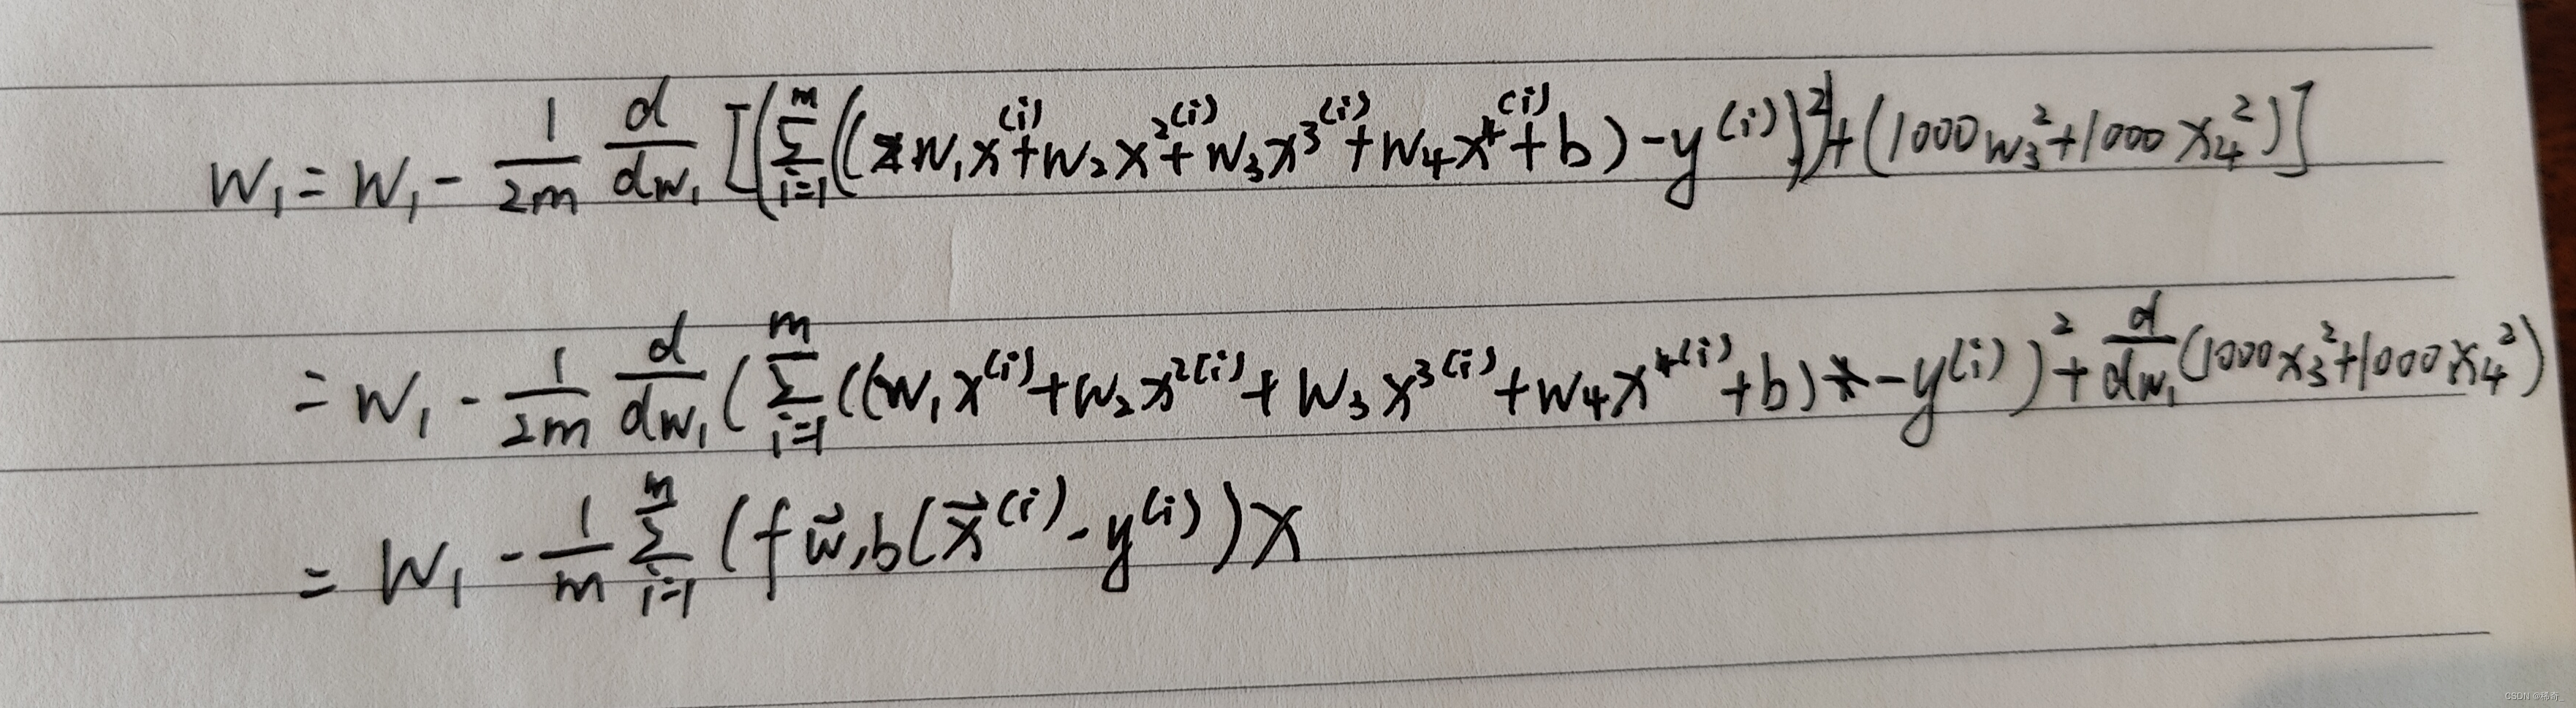 w₁ = w₁ - 1/2m d/dw₁ [(∑ᵢ₌₁ᵐ ((w₁x⁽ⁱ⁾ + w₂x²⁽ⁱ⁾ + w₃x³⁽ⁱ⁾ + w₄x⁴⁽ⁱ⁾ + b) - y⁽ⁱ⁾))² + (1000w₃² + 1000x₄²)]
= w₁ - 1/2m d/dw₁ (∑ᵢ₌₁ᵐ ((w₁x⁽ⁱ⁾ + w₂x²⁽ⁱ⁾ + w₃x³⁽ⁱ⁾ + w₄x⁴⁽ⁱ⁾ + b) - y⁽ⁱ⁾)² + d/dw₁ (1000x₃² + 1000x₄²)
= w₁ - 1/m ∑ᵢ₌₁ᵐ (f w⃗,b(x⃗⁽ⁱ⁾ - y⁽ⁱ⁾)x